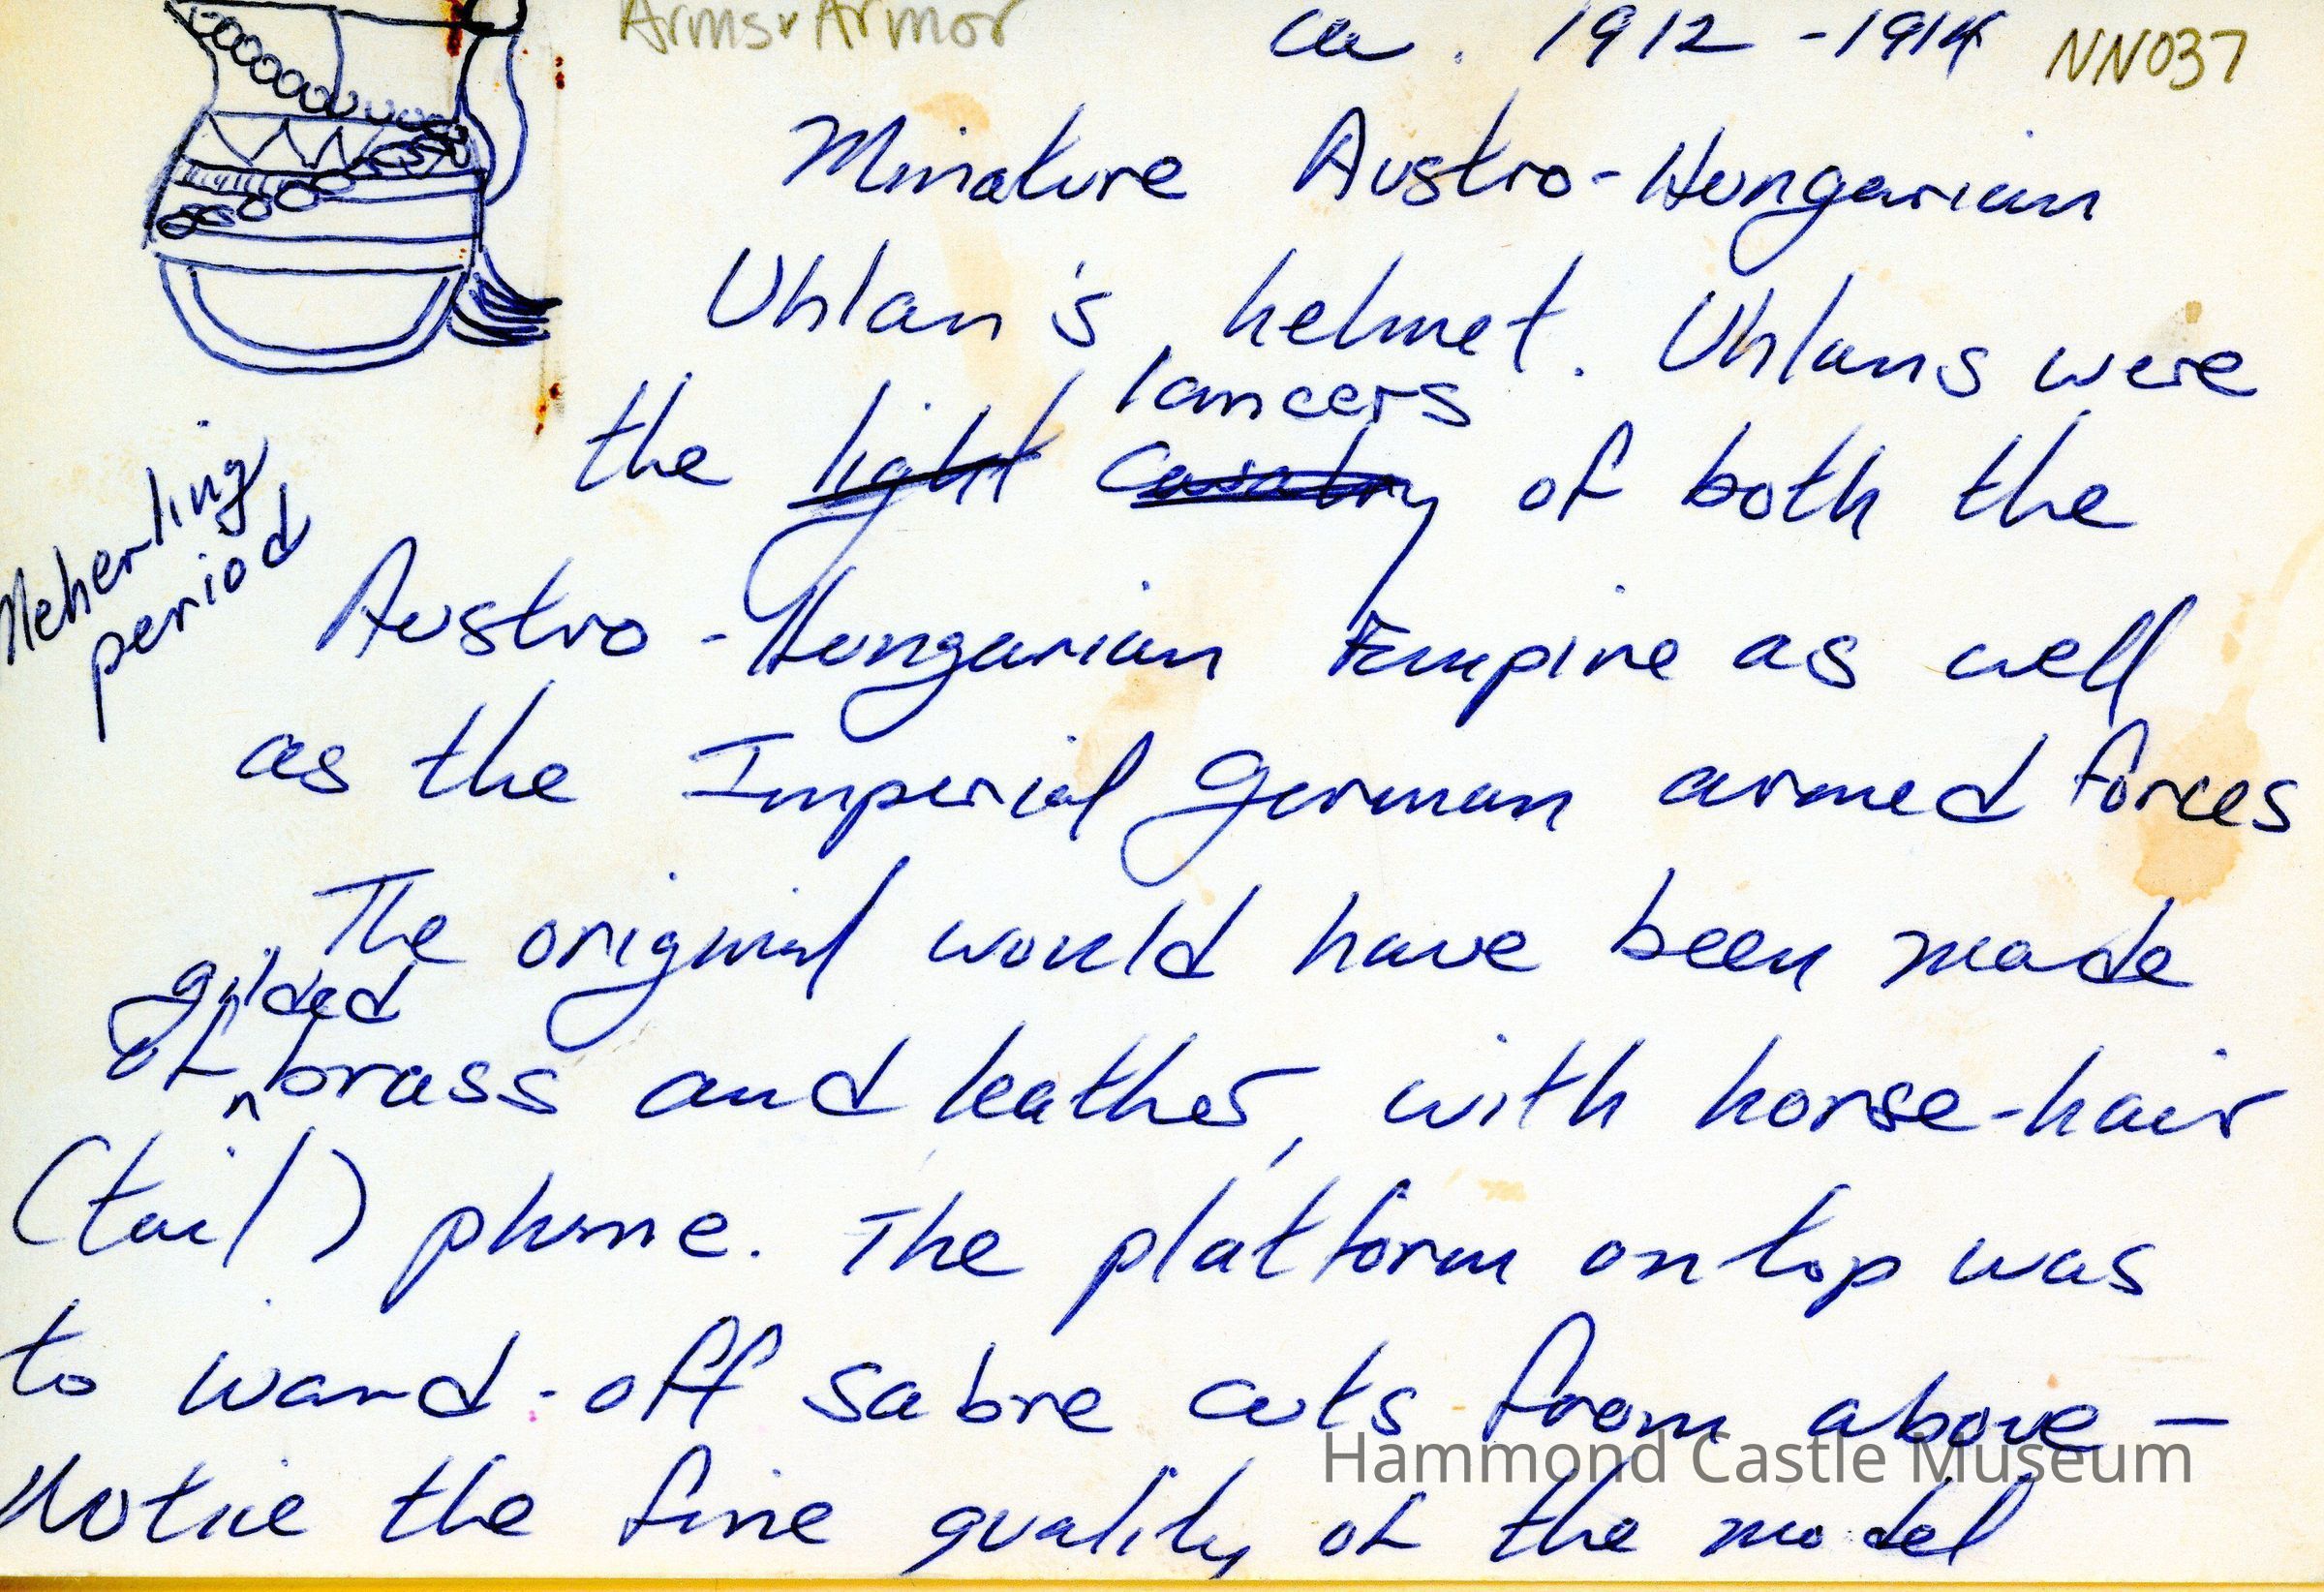 Arms & Armor
ca. 1912-1914 NN037
Minature Austro-Hungarian
Uhlan's helmet. Uhlans were
lancers
the light cavalry of both the
Neherling
period
Austro-Hungarian Empire as well
as the Imperial German armed forces
The original would have been made
gilded
of ^ brass and leather, with horse-hair
(tail) plume. The platform on top was
to ward-off sabre cuts from above —
Hammond Castle Museum
Notice the fine quality of the model